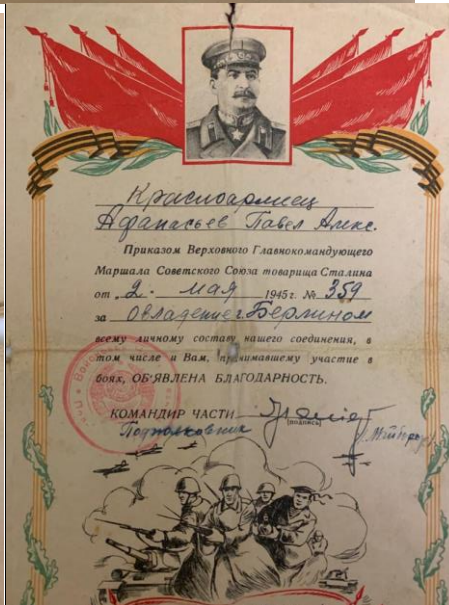 Красноармеец
Афанасьев Павел Алекс.
Приказом Верховного Главнокомандующего
Маршала Советского Союза товарища Сталина
от „2." мая 1945 г. № 359
за овладение г. Берлином
всему личному составу нашего соединения, в
том числе и Вам, принимавшему участие в
боях, ОБ'ЯВЛЕНА БЛАГОДАРНОСТЬ.
КОМАНДИР ЧАСТИ
(подпись)
Подполковник